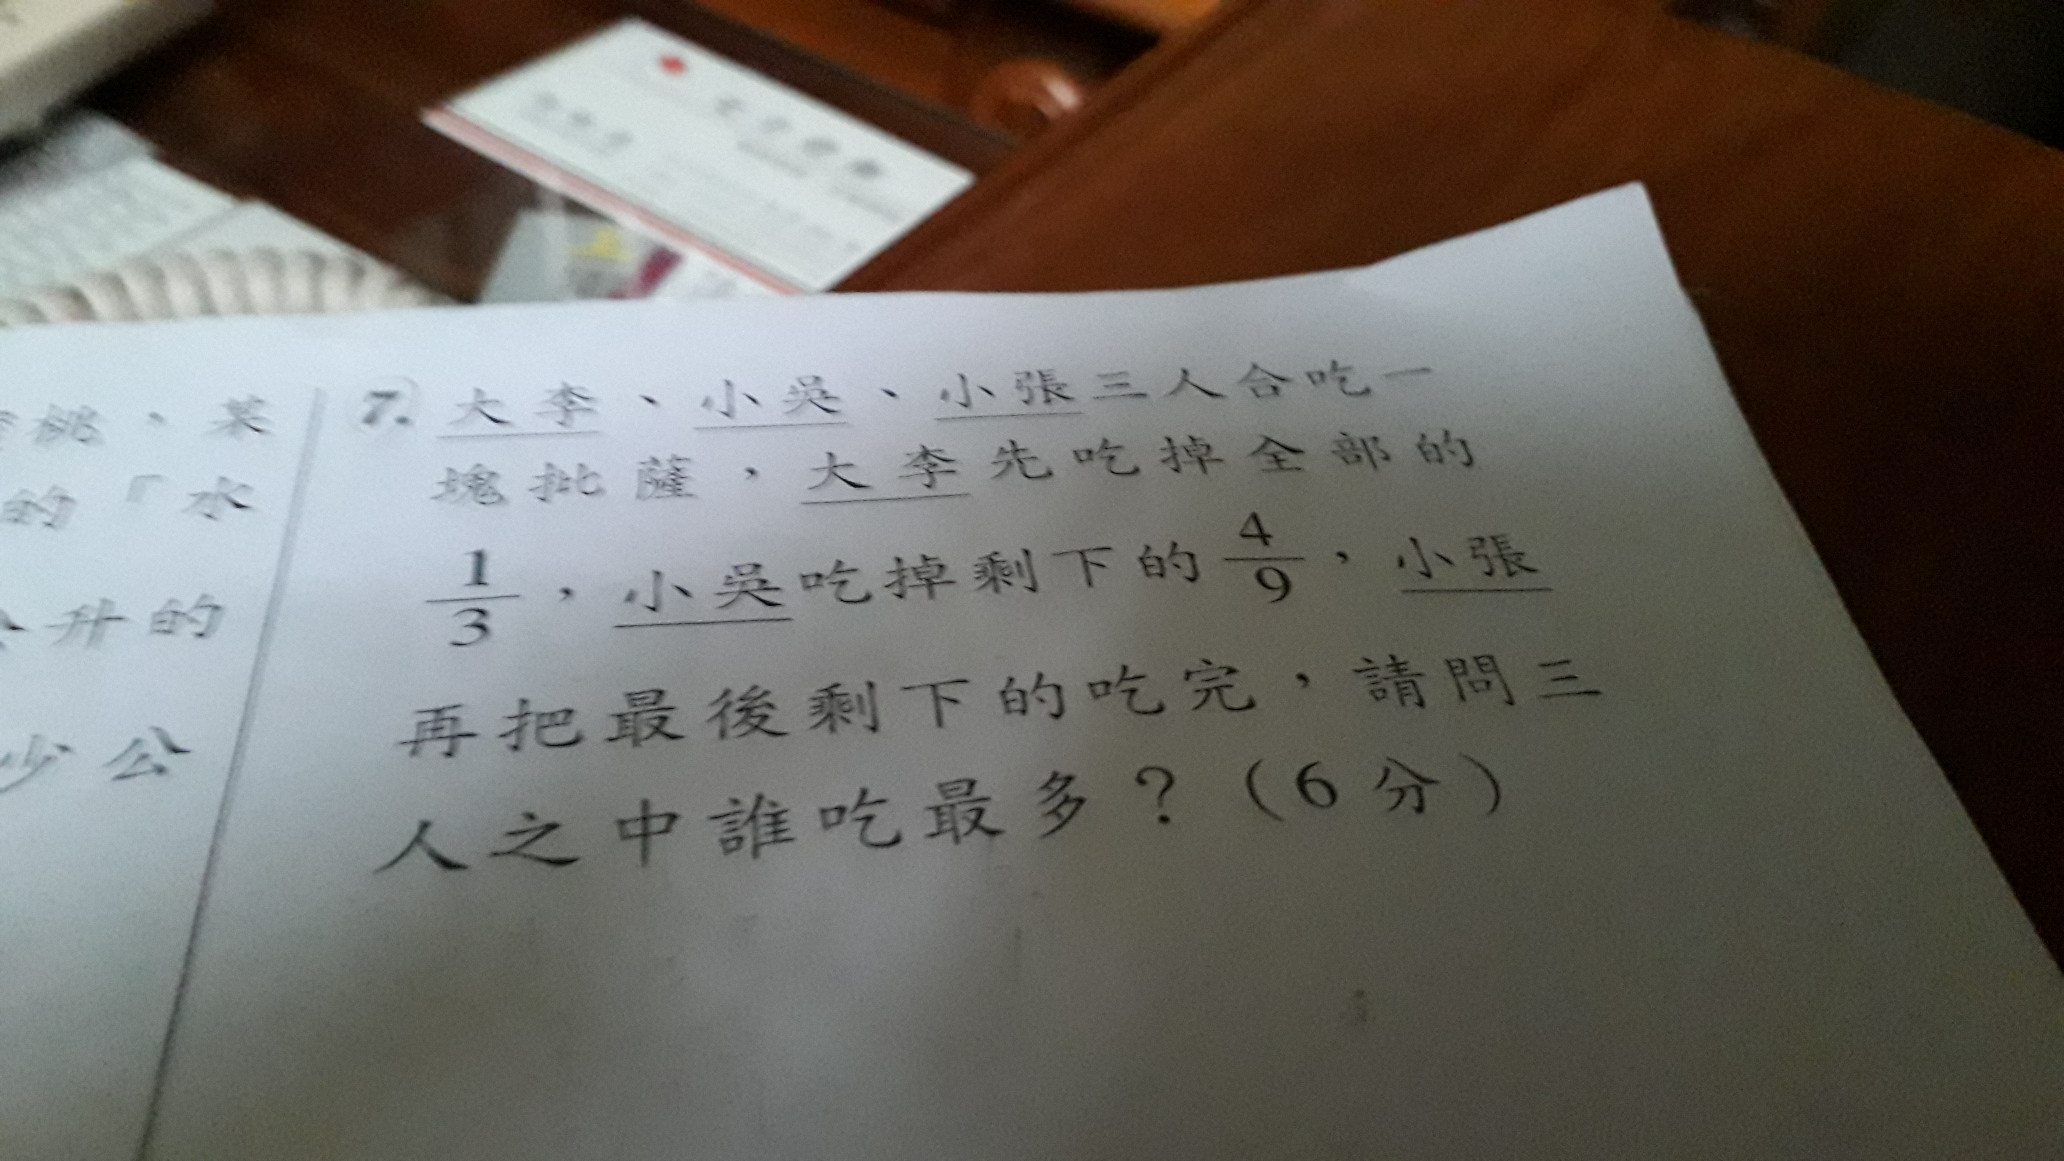 桃、菜
的「水
升的
少公
7. 大李、小吳、小張三人合吃一
塊批薩，大李先吃掉全部的
1/3，小吳吃掉剩下的4/9，小張
再把最後剩下的吃完，請問三
人之中誰吃最多？（6分）